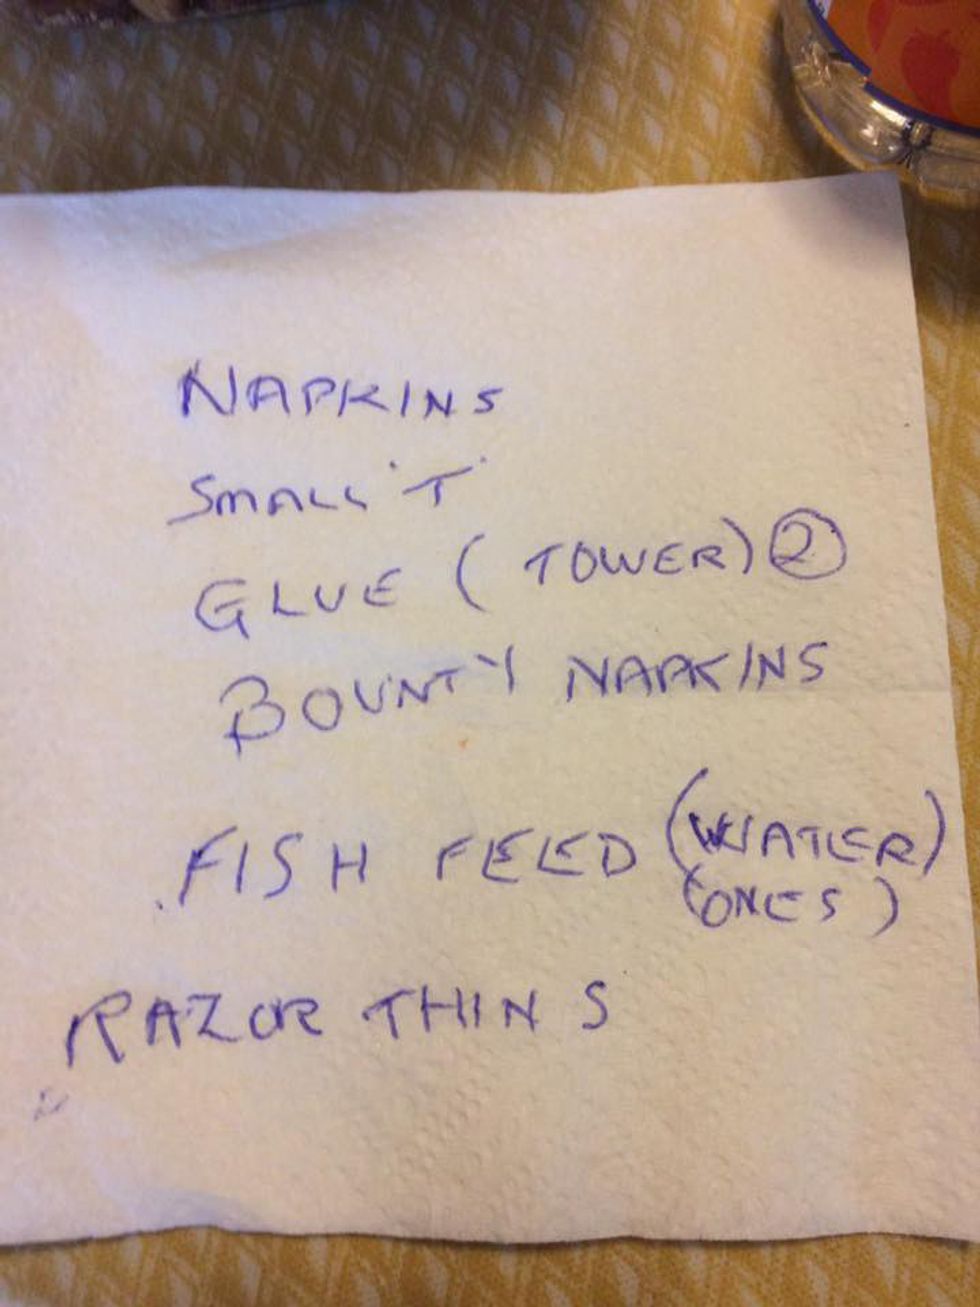 NAPKINS
SMALL 'T'
GLUE ( TOWER) 2
BOUNTY NAPKINS
FISH FEED (WATER)
(ONES)
RAZOR THIN S